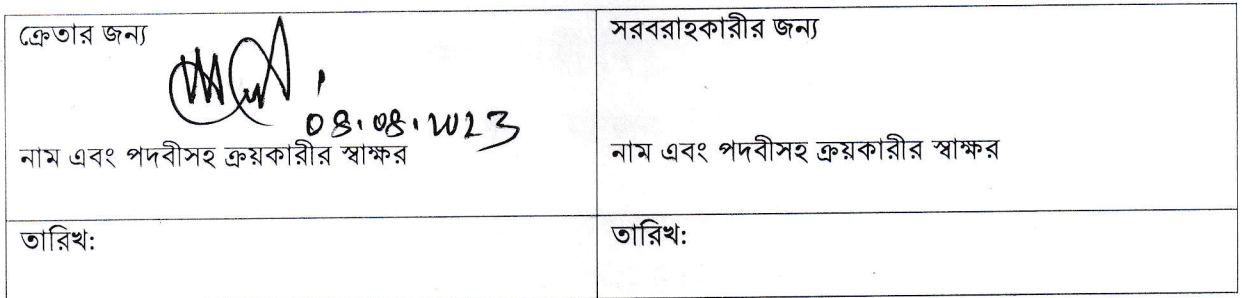 ক্রেতার জন্য
08.08.2023
নাম এবং পদবীসহ ক্রয়কারীর স্বাক্ষর
তারিখ:
সরবরাহকারীর জন্য
নাম এবং পদবীসহ ক্রয়কারীর স্বাক্ষর
তারিখ: